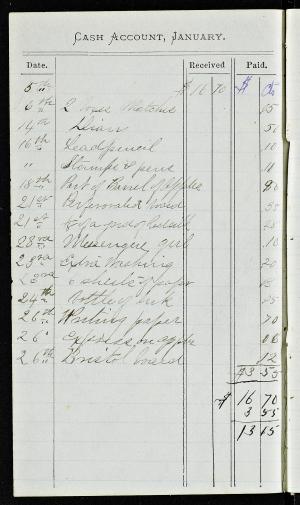 CASH ACCOUNT, JANUARY.
Date. Received Paid.
5th $ 16 70 $ Cts
6th 2 boxes Matches 05
14th Diary 50
16th Lead pencil 10
" Stamps & pens 11
18th Part of Barrel of Apples 90
21st Perforated board
21st
23rd Messenger girl 10
23rd Extra washing 20
6 sheets of paper
24th bottle of ink 05
26th Writing paper 70
26" Express on apples
26th Bristol board 12
$3 55
$ 16 70
3 55
13 15